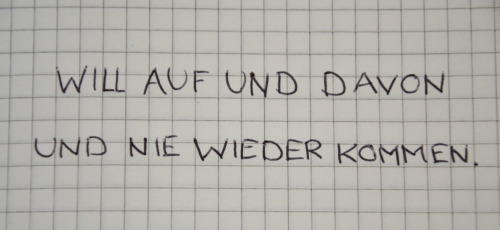 WILL AUF UND DAVON
UND NIE WIEDER KOMMEN.